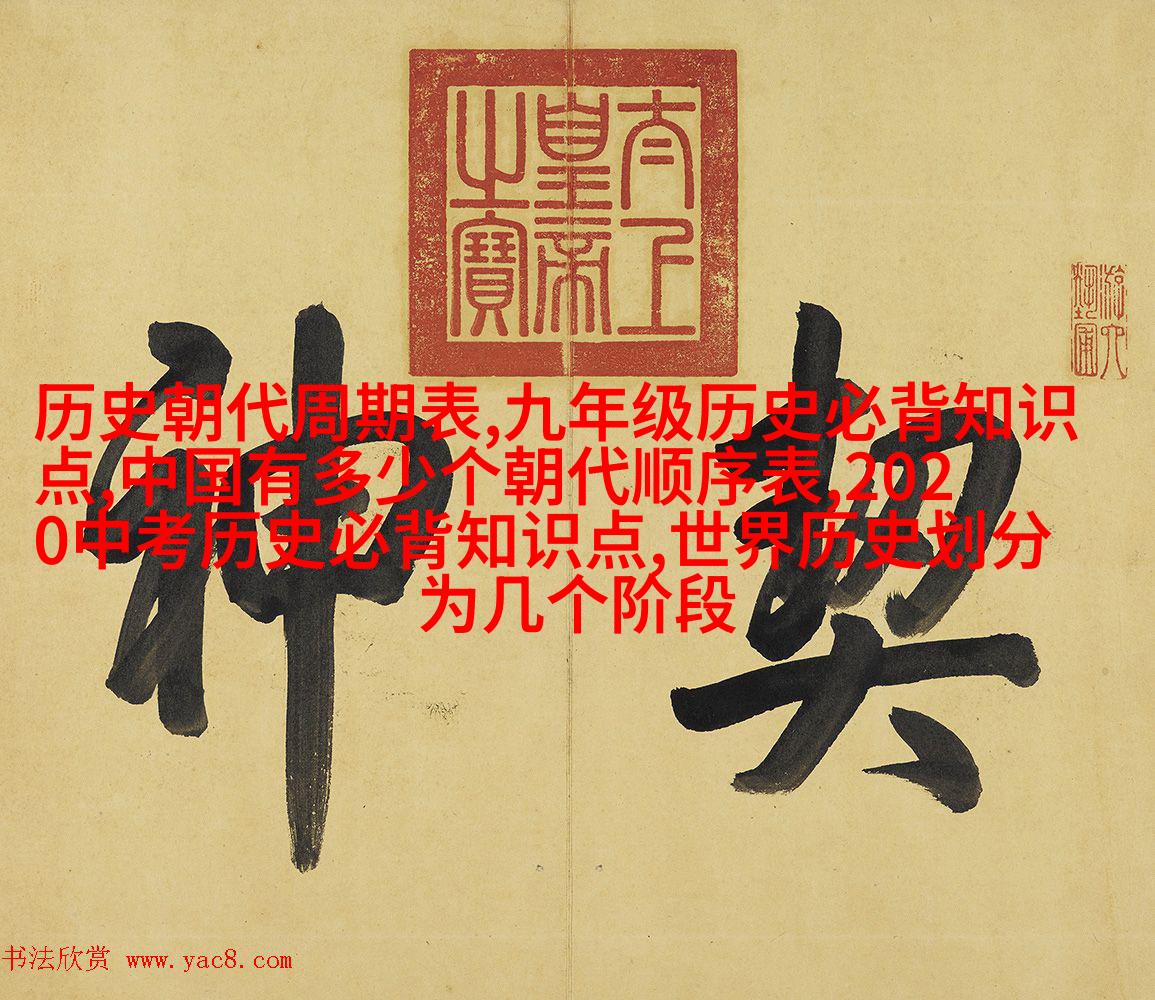 太上
皇帝
之寶
游六
藝圃
契神
历史朝代周期表,九年级历史必背知识
点,中国有多少个朝代顺序表,202
0中考历史必背知识点,世界历史划分
为几个阶段
书法欣赏 www.yac8.com